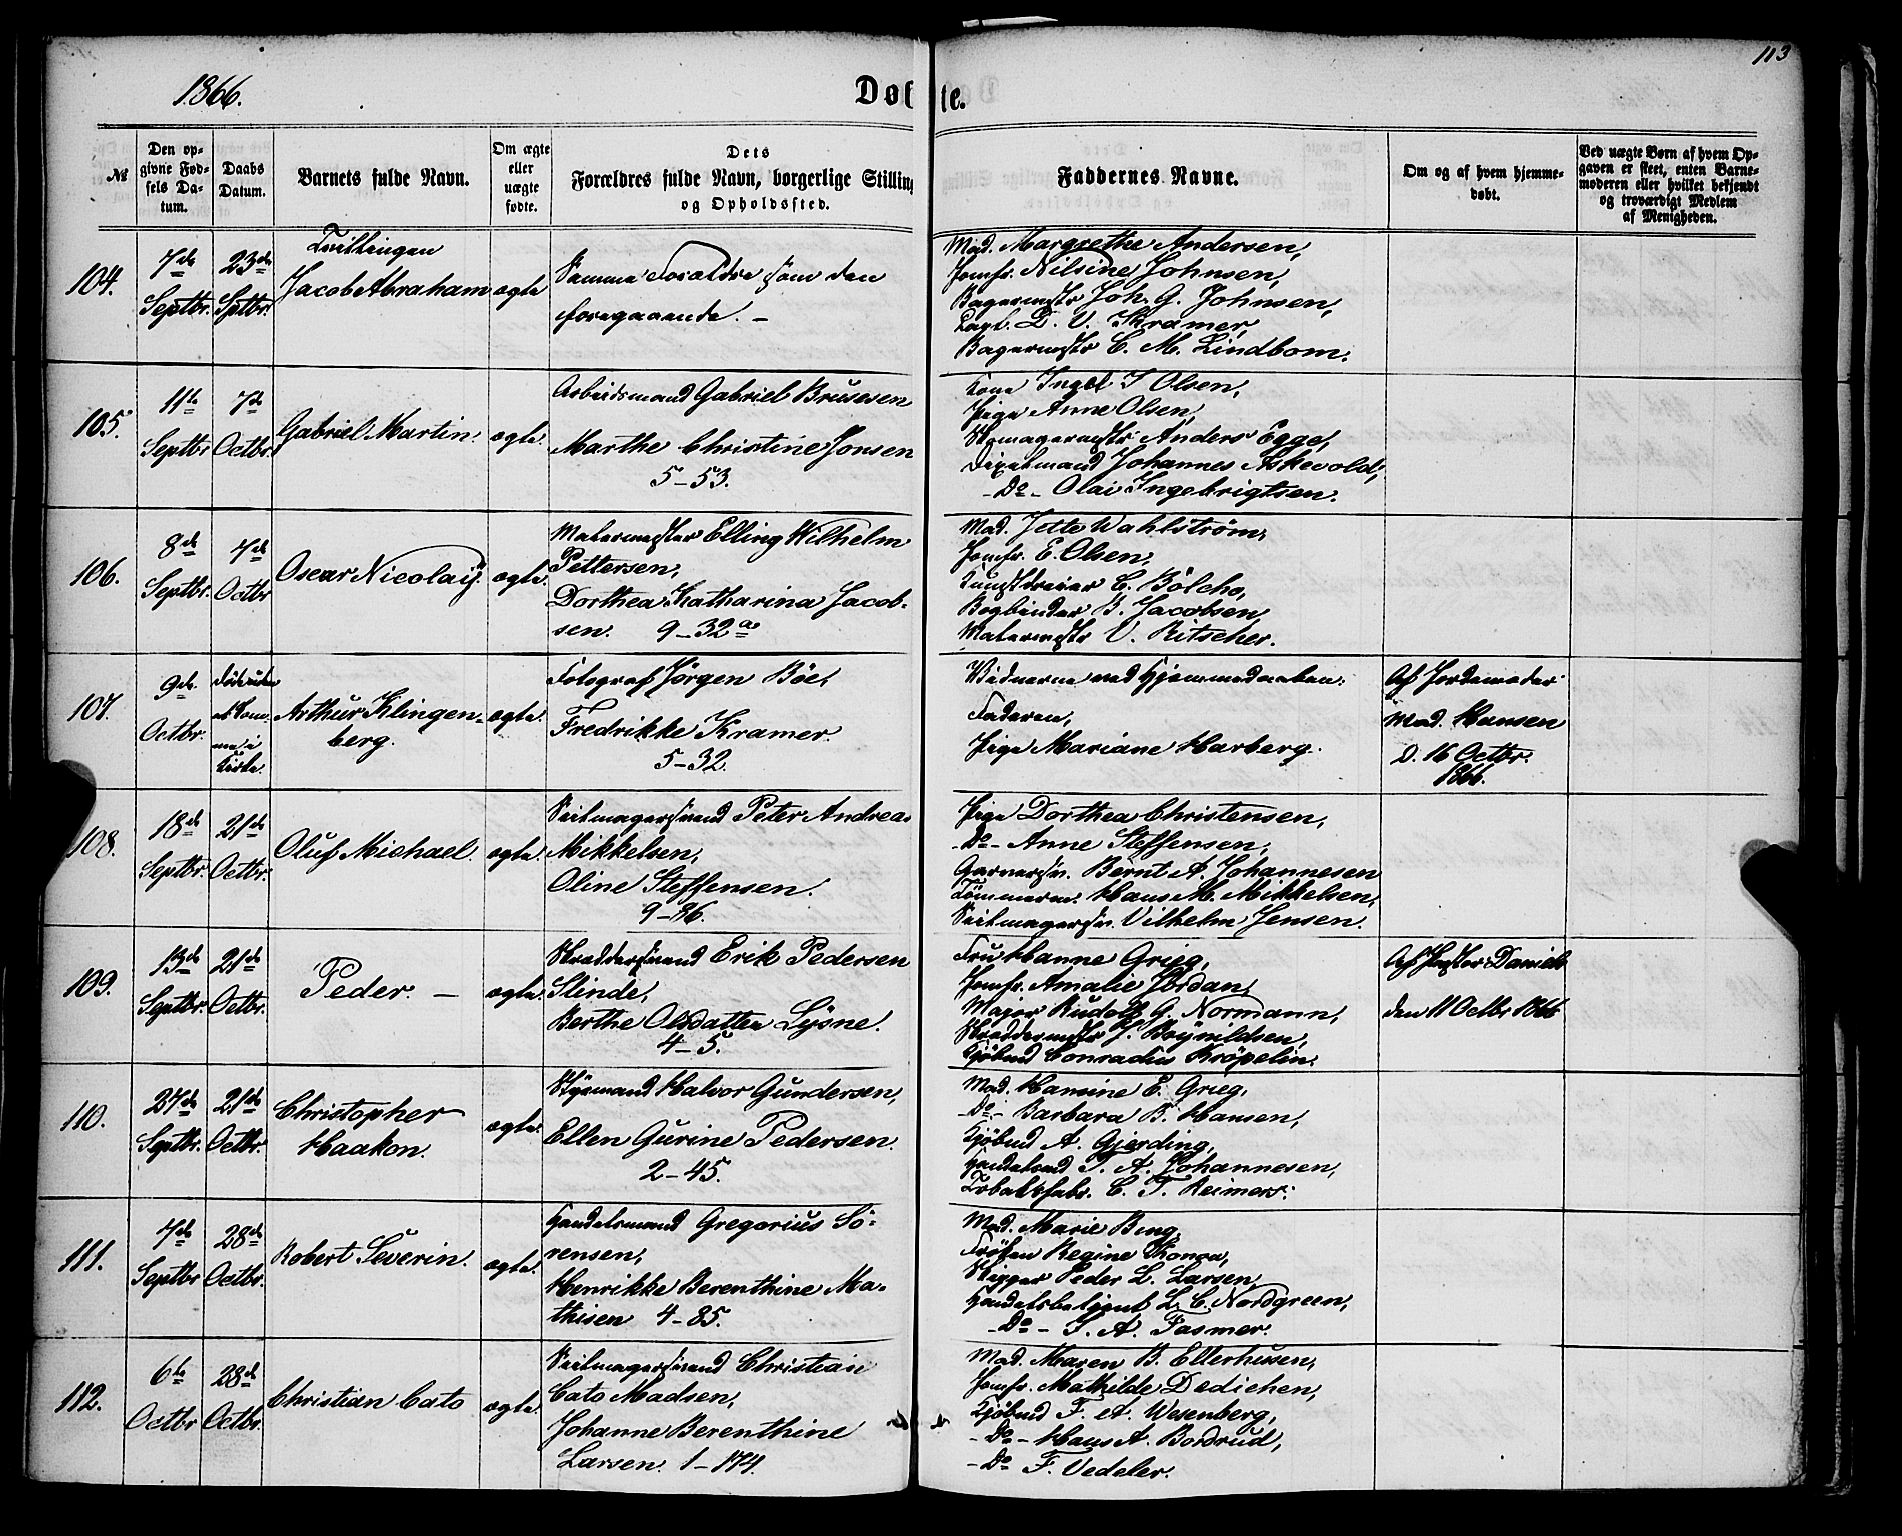 113
1866.
Døbte.
№
Den op-
givne Fød-
sels Da-
tum.
Daabs
Datum.
Barnets fulde Navn.
Om ægte
eller
uægte
fødte.
Dets
Forældres fulde Navn, borgerlige Stilling
og Opholdssted.
Faddernes Navne.
Om og af hvem hjemme-
døbt.
Ved uægte Børn af hvem Op-
gaven er skeet, enten Barne-
moderen eller hvilket bekjendt
og troværdigt Medlem
af Menigheden.
104.
7de
Septbr.
23de
Sptbr.
Tvillingen
Jacob Abraham
ægte
Samme Forældre som den
foregaaende. –
Mad. Margrethe Andersen,
Jomfr. Nilsine Johnsen,
Bagermstr Joh. G. Johnsen,
Capt. D. V. Kramer,
Bagermstr C. M. Lindbom.
105.
11te
Septbr
7de
Octbr.
Gabriel Martin.
ægte.
Arbeidsmand Gabriel Brusesen
Marthe Christine Jonsen
5–53.
Kone Ingel J Olsen,
Pige Anne Olsen,
Skomagermstr Anders Egge,
Johannes Askevold,
–Do– Olai Ingebrigtsen.
106.
8de
Septbr.
7de
Octbr
Oscar Nicolaij.
ægte.
Malermester Elling Wilhelm
Pettersen,
Dorthea Katharina Jacob-
sen. 9–32a
Mad. Jette Wahlström,
Jomfr. E. Olsen,
Kunstdreier C. Bölcho,
Bogbinder B. Jacobsen,
Malermstr V. Ritscher.
107.
9de
Octbr.
Döde uden
at kom-
me i
Kirke.
Arthur Klingen-
berg.
ægte.
Fotograf Jörgen Böe,
Fredrikke Kramer.
5–32.
Vidnerne ved Hjemmedaaben:
Faderen,
Pige Mariane Harberg.
Af Jordemoder
Mad. Hansen
D. 16 Octbr.
1866.
108.
18de
Septbr.
21de
Octbr.
Oluf Michael.
ægte.
Seilmagersvend Peter Andreas
Mikkelsen,
Oline Steffensen.
9–96.
Pige Dorthea Christensen,
–Do– Anne Steffensen,
Garversv. Bernt A. Johannesen
Tömmerm. Hans M. Mikkelsen,
Seilmagersv. Vilhelm Jensen.
109.
13de
Septbr.
21de
Octbr.
Peder. –
ægte.
Skræddersvend Erik Pedersen
Slinde,
Berthe Olsdatter Lysne.
4–5.
Fru Hanne Grieg,
Jomfr. Amalie Jordan,
Major Rudolf G. Normann,
Skræddermstr J. Böynildsen,
Kjöbmd Conradin Kröpelin.
Af Pastor Daniels
den 11 Octbr 1866
110.
27de
Septbr.
21de
Octbr.
Christopher
Haakon.
ægte.
Styrmand Halvor Gundersen,
Ellen Gurine Pedersen.
2–45.
Mad. Hansine E. Grieg,
–Do– Barbara B. Hansen,
Kjöbmd A. Gjerding,
Handelsmd T. A. Johannesen,
Tobaksfabr. C. T. Reimers.
111.
7de
Septbr
28de
Octbr.
Robert Severin.
ægte.
Handelsmand Gregorius Sö-
rensen,
Henrikke Berenthine Ma-
thisen 4–85.
Mad. Marie Bing,
Fröken Regine Konow,
Skipper Peder L. Larsen,
Handelsbetjent L. C. Nordgreen,
–Do– J. A. Fasmer.
112.
6te
Octbr
28de
Octbr.
Christian Cato
ægte.
Seilmagersvend Christian
Cato Madsen,
Johanne Berenthine
Larsen. 1–174.
Mad. Maren B. Ellerhusen,
Jomfr. Mathilde Dedichen,
Kjöbmd F. A. Wesenberg,
–Do– Hans A. Bordrud,
–Do F. Vedeler.